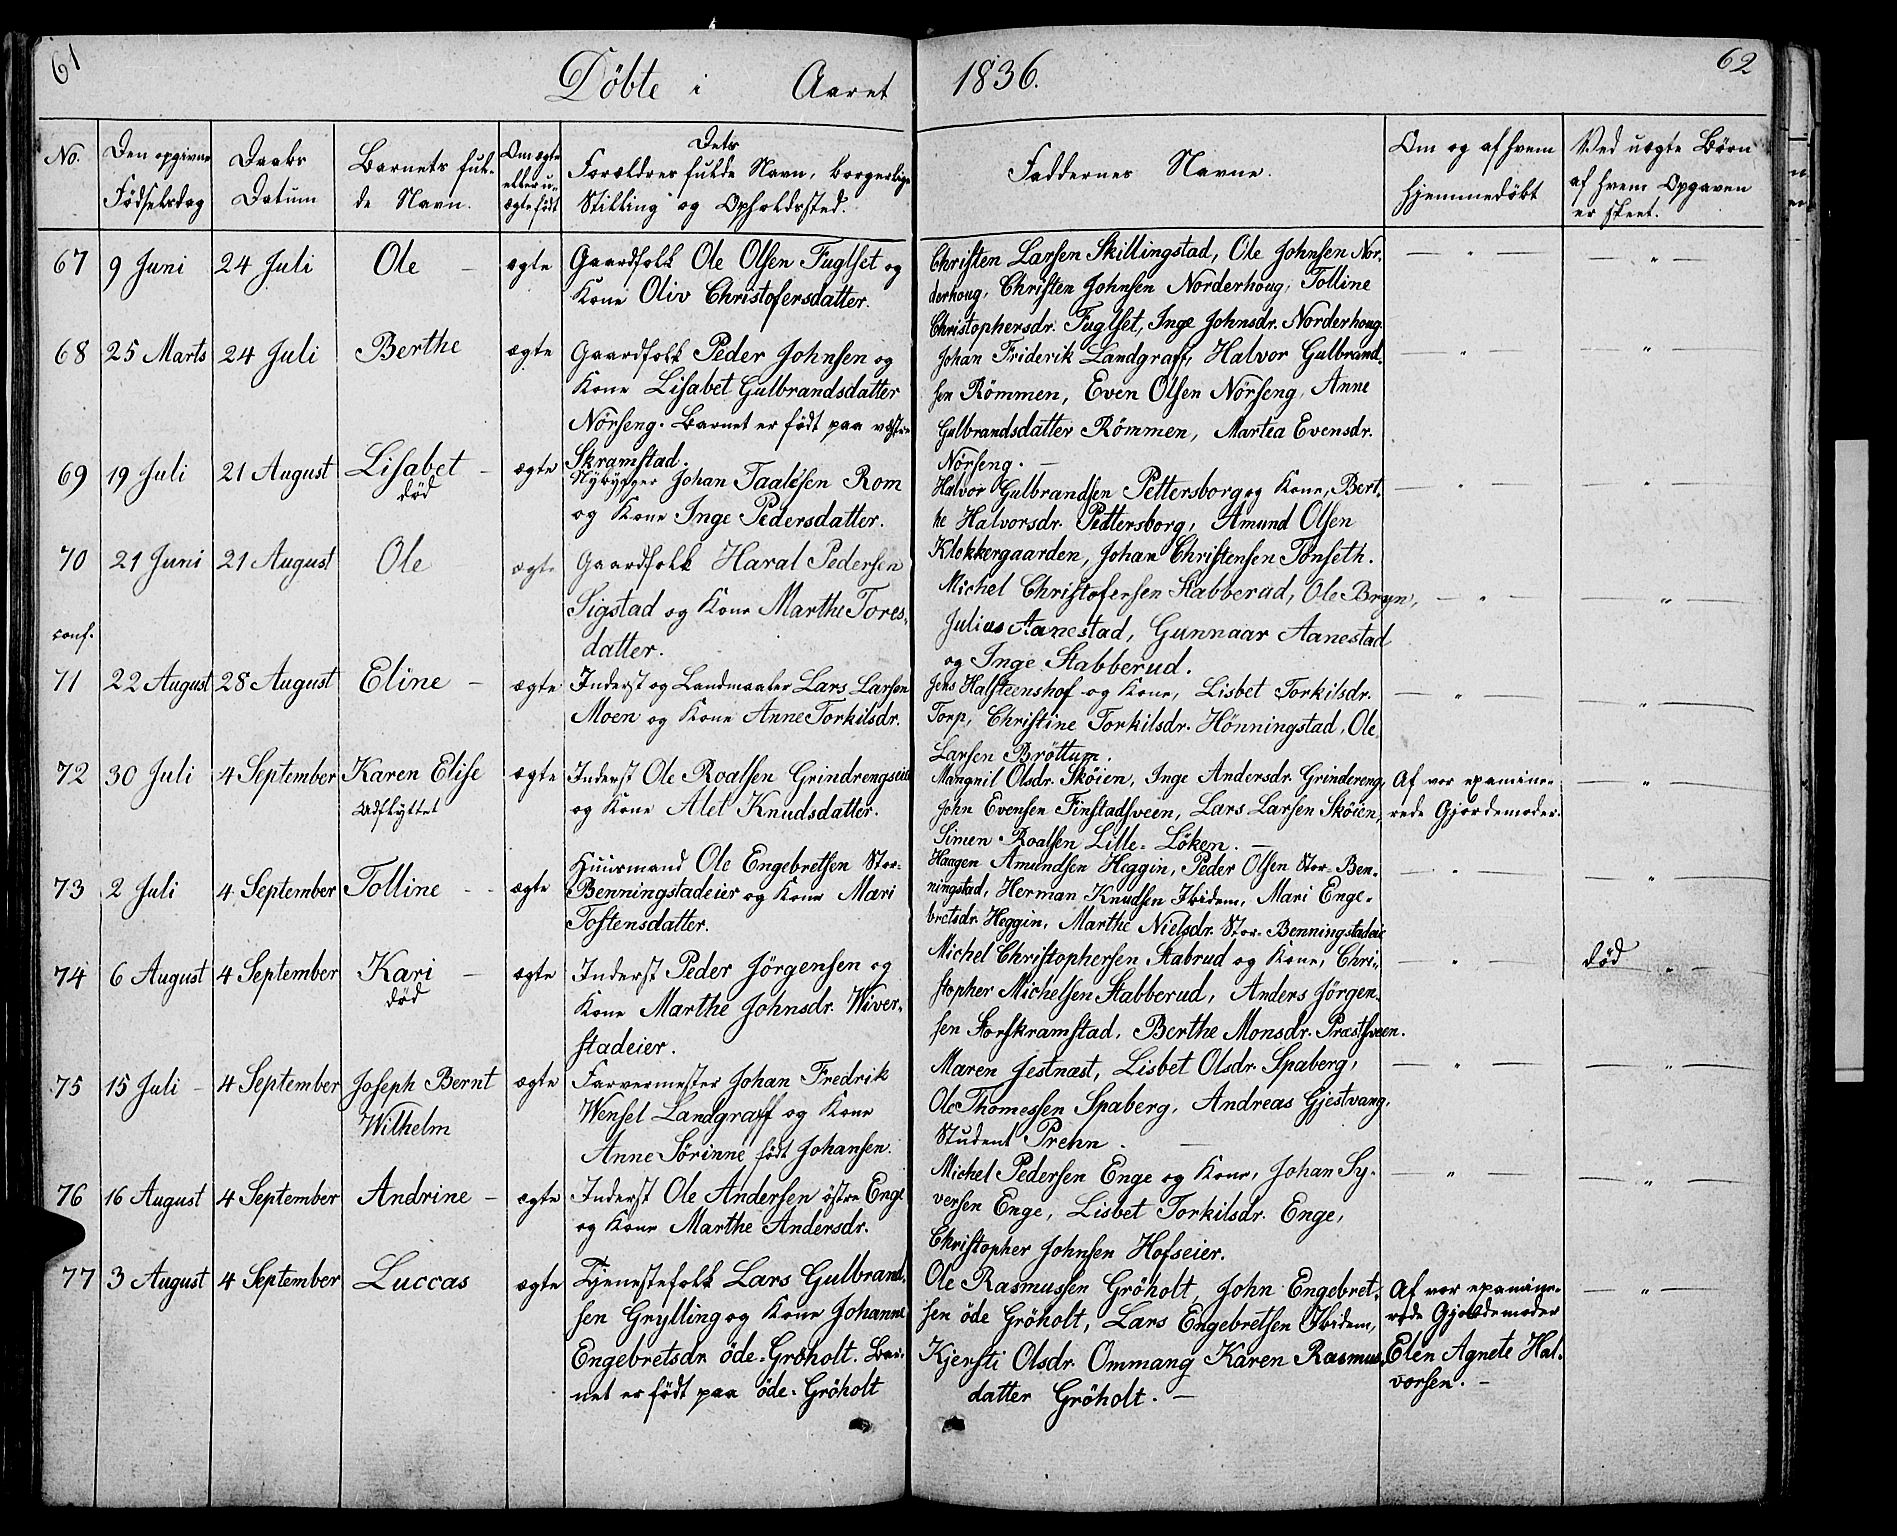 61
Döbte i Aaret 1836.
62
No.
Den opgivne Fødselsdag
Daabs Datum
Barnets fulde Navn.
Om ægte eller uægte født
Dets Forældres fulde Navn, borgerlige Stilling og Opholdssted.
Faddernes Navne.
Om og af hvem hjemmedøbt
Ved uægte Børn af hvem Opgaven er skeet.
67 9 Juni 24 Juli Ole - ægte
Gaardfolk Ole Olsen Fuglset og
Kone Oliv Christofersdatter.
Christen Larsen Skillingstad, Ole Johnsen Nor-
derhoug, Christen Johnsen Norderhoug, Tolline
Christophersdr. Fuglset, Inge Johnsdr. Norderhoug.
— " — — " —
68 25 Marts 24 Juli Berthe ægte
Gaardfolk Peder Johnsen og
Kone Lisabet Gulbrandsdatter
Nörseng. Barnet er født paa vestre
Skramstad.
Johan Friderik Landgraff, Halvor Gulbrand-
sen Römmen, Even Olsen Nörseng, Anne
Gulbrandsdatter Römmen, Martea Evensdr.
Nörseng. —
— " — — " —
69 19 Juli 21 August Lisabet - ægte
død
Nybygger Johan Taalesen Rom
og Kone Inge Pedersdatter.
Halvor Gulbrandsen Pettersborg og Kone, Bert-
he Halvorsdr. Pettersborg, Amund Olsen
Klokkergaarden, Johan Christensen Tönseth.
— " — — " —
70 21 Juni 21 August Ole ægte
conf.
Gaardfolk Haral Pedersen
Sigstad og Kone Marthe Tores-
datter.
Michel Christofersen Stabberud, Ole Bryn,
Julius Aanestad, Gunnaar Aanestad
og Inge Stabberud.
— " — — " —
71 22 August 28 August Eline - ægte
Inderst og Landmaaler Lars Larsen
Moen og Kone Anne Torkilsdr.
Jens Halsteenshof og Kone, Lisbet Torkilsdr.
Torp, Christine Torkilsdr. Hönningstad, Ole
Larsen Bröttum.
— " — — " —
72 30 Juli 4 September Karen Elise ægte
Udflyttet
Inderst Ole Roalsen Grindrengseie
og Kone Alet Knudsdatter.
Mangnil Olsdr. Sköien, Inge Andersdr. Grindereng,
John Evensen Finstadsveen, Lars Larsen Sköien,
Simen Roalsen Lille-Löken. —
Af vor examine-
rede Gjordemoder.
— " —
73 2 Juli 4 September Tolline - - ægte
Huusmand Ole Engebretsen Stor-
Benningstadeier og Kone Mari
Tostensdatter.
Haagen Amundsen Heggin, Peder Olsen Stor-Ben-
ningstad, Herman Knudsen Ibidem, Mari Enge-
bretsdr. Heggin, Marthe Nielsdr. Stor-Benningstadeie
— " — — " —
74 6 August 4 September Kari - ægte
død
Inderst Peder Jörgensen og
Kone Marthe Johnsdr. Wiver-
stadeier.
Michel Christophersen Stabrud og Kone, Chri-
stopher Michelsen Stabberud, Anders Jörgen-
sen Storskramstad, Berthe Monsdr. Præstsveen.
— " — død — " —
75 15 Juli - 4 September Joseph Bernt ægte
Wilhelm
Farvermester Johan Fredrik
Wensel Landgraff og Kone
Anne Sörinne født Johansen.
Maren Jestnæst, Lisbet Olsdr. Spaberg,
Ole Thomessen Spaberg, Andreas Gjestvang,
Student Prehn. —
— " — — " —
76 16 August 4 September Andrine - ægte
Inderst Ole Andersen östre Enge
og Kone Marthe Andersdr.
Michel Pedersen Enge og Kone, Johan Sy-
versen Enge, Lisbet Torkilsdr. Enge,
Christopher Johnsen Hofseier.
— " — — " —
77 3 August 4 September Luccas ægte
Tjenestefolk Lars Gulbrand-
sen Grylling og Kone Johanne
Engebretsdr. öde-Gröholt. Bar-
net er født paa öde-Gröholt
Ole Rasmussen Gröholt, John Engebret-
sen öde Gröholt, Lars Engebretsen Ibidem,
Kjersti Olsdr. Ommang Karen Rasmus-
datter Gröholt. —
Af vor examine-
rede Gjordemoder
Elen Agnete Hal-
vorsen. -
— " —